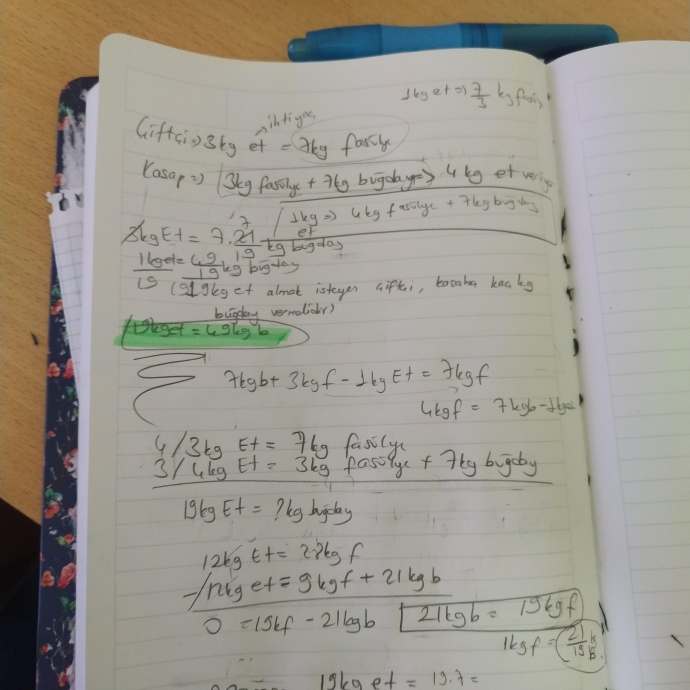 1kg et => 7/3 kg fasü
ihtiyaç
Çiftçi => 3kg et = 7kg fasülye
Kasap => 3kg fasülye + 7kg buğday => 4 kg et veriyo
1kg et => 4kg fasülye + 7kg buğday
3kg Et = 7.21/19 kg buğday 7
1kg et = 49/19 kg buğday
19
(19kg et almak isteyen çiftçi, kasaba kaç kg
buğday vermelidir)
19kg et = 49kg b
7kgb + 3kgf - 1kg Et = 7kgf
4kgf = 7kgb - 1kg
4/3kg Et = 7kg fasülye
3/4kg Et = 3kg fasülye + 7kg buğday
19kg Et = ?kg buğday
12kg Et = 28kg f
-/12kg et = 9kgf + 21kgb
0 = 19kf - 21kgb 21kgb = 19kgf
1kgf = 21/19 k b.
19kg et = 19.7 =